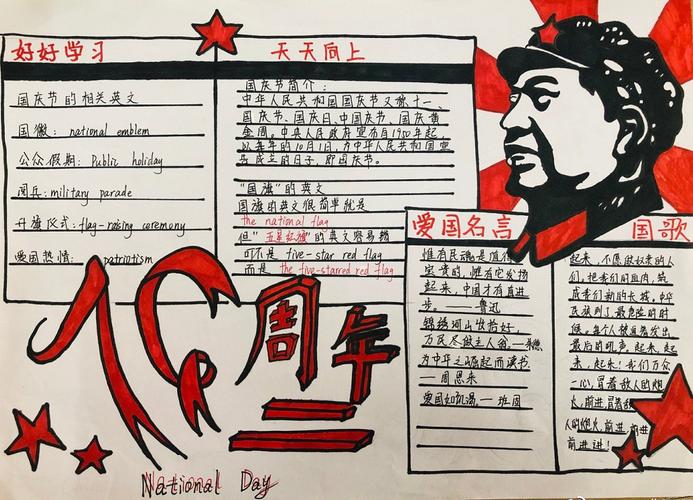 好好学习
国庆节的相关英文
国徽: national emblem
公众假期: Public holiday
阅兵: military parade
升旗仪式: flag-raising ceremony
爱国热情: patriotism
天天向上
国庆节简介:
中华人民共和国国庆节又称十一、
国庆节、国庆日、中国国庆节、国庆黄
金周。中央人民政府宣布自1950年起,
以每年的10月1日,为中华人民共和国宣
告成立的日子,即国庆节。
“国旗”的英文
国旗的英文很简单就是
the national flag
但“五星红旗”的英文容易错
可不是 five-star red flag
而是 the five-starred red flag
爱国名言
惟有民魂是值得
宝贵的,惟有它发扬
起来,中国才有真进
步。——鲁迅
锦绣河山收拾好,
万民尽做主人翁。—朱德
为中华之崛起而读书
—周恩来
爱国如饥渴。—班固
国歌
起来,不愿做奴隶的人
们,把我们的血肉,筑
成我们新的长城。中华
民族到了最危险的时
候。每个人被迫着发出
最后的吼声。起来,起
来,起来!我们万众
一心,冒着敌人的炮
火,前进,冒着敌
人的炮火,前进,前进
前进进!
周年
National Day